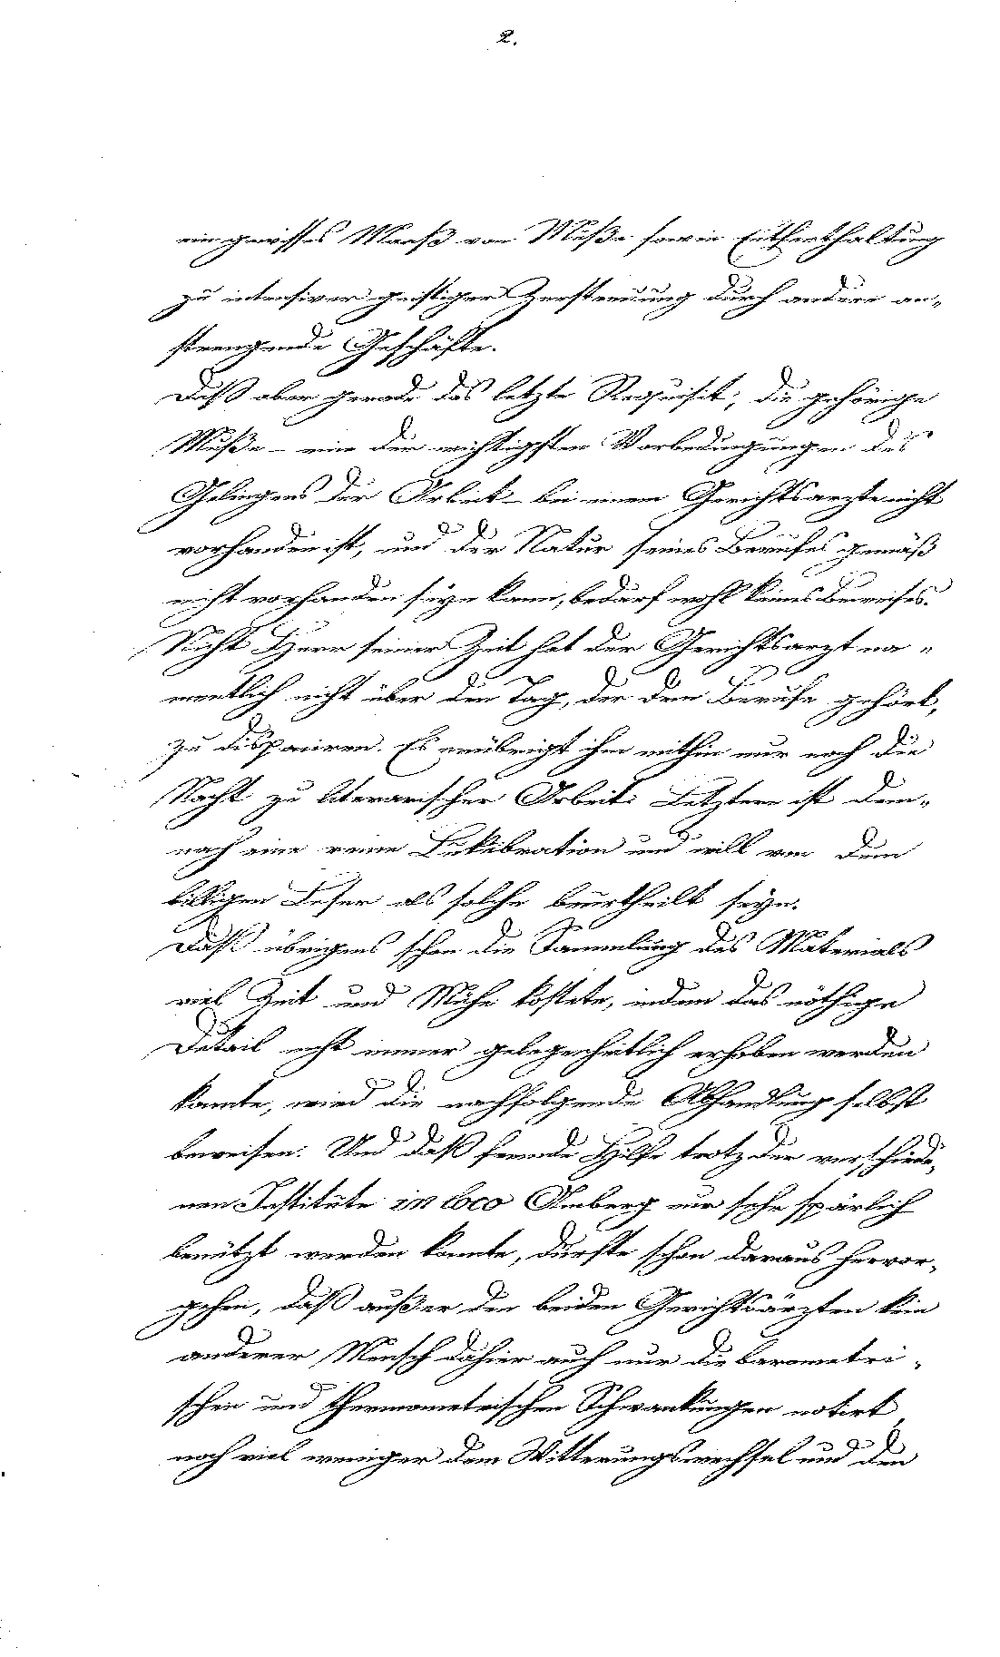 2.
ein gewisses Maaß von Muße sowie Entfernthaltung
zu intensiver geistiger Zerstreuung durch andere an-
strengende Geschäfte.
Daß aber gerade das letzte Requisit, die gehörige
Muße – eine der wichtigsten Vorbedingungen des
Gelingens der Arbeit – bei einem Gerichtsarzte nicht
vorhanden ist, und der Natur seines Berufes gemäß
nicht vorhanden seyn kann, bedarf wohl keines Beweises.
Nicht Herr seiner Zeit hat der Gerichtsarzt na-
mentlich nicht über den Tag, der dem Berufe gehört,
zu disponiren. Es erübrigt ihm mithin nur noch die
Nacht zu literarischer Arbeit. Letztere ist dem-
nach eine reine Lukubration und will von dem
billigen Leser als solche beurtheilt seyn.
Daß übrigens schon die Sammlung des Materials
viel Zeit und Mühe kostete, indem das nöthige
Detail nicht immer gelegenheitlich erhoben werden
konnte, wird die nachfolgende Abhandlung selbst
beweisen. Und daß fremde Hilfe trotz der verschiede-
nen Institute in loco Amberg nur sehr spärlich
benützt werden konnte, dürfte schon daraus hervor-
gehen, daß außer den beiden Gerichtsärzten kein
anderer Mensch dahier auch nur die barometri-
schen und thermometrischen Schwankungen notirt,
noch viel weniger dem Witterungswechsel und den